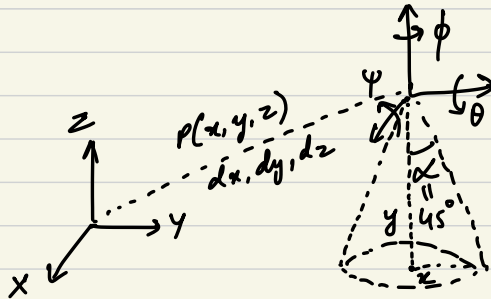 ϕ
ψ
θ
Z
p(x,y,z)
dx, dy, dz
α
=
45°
Y
y
X
x